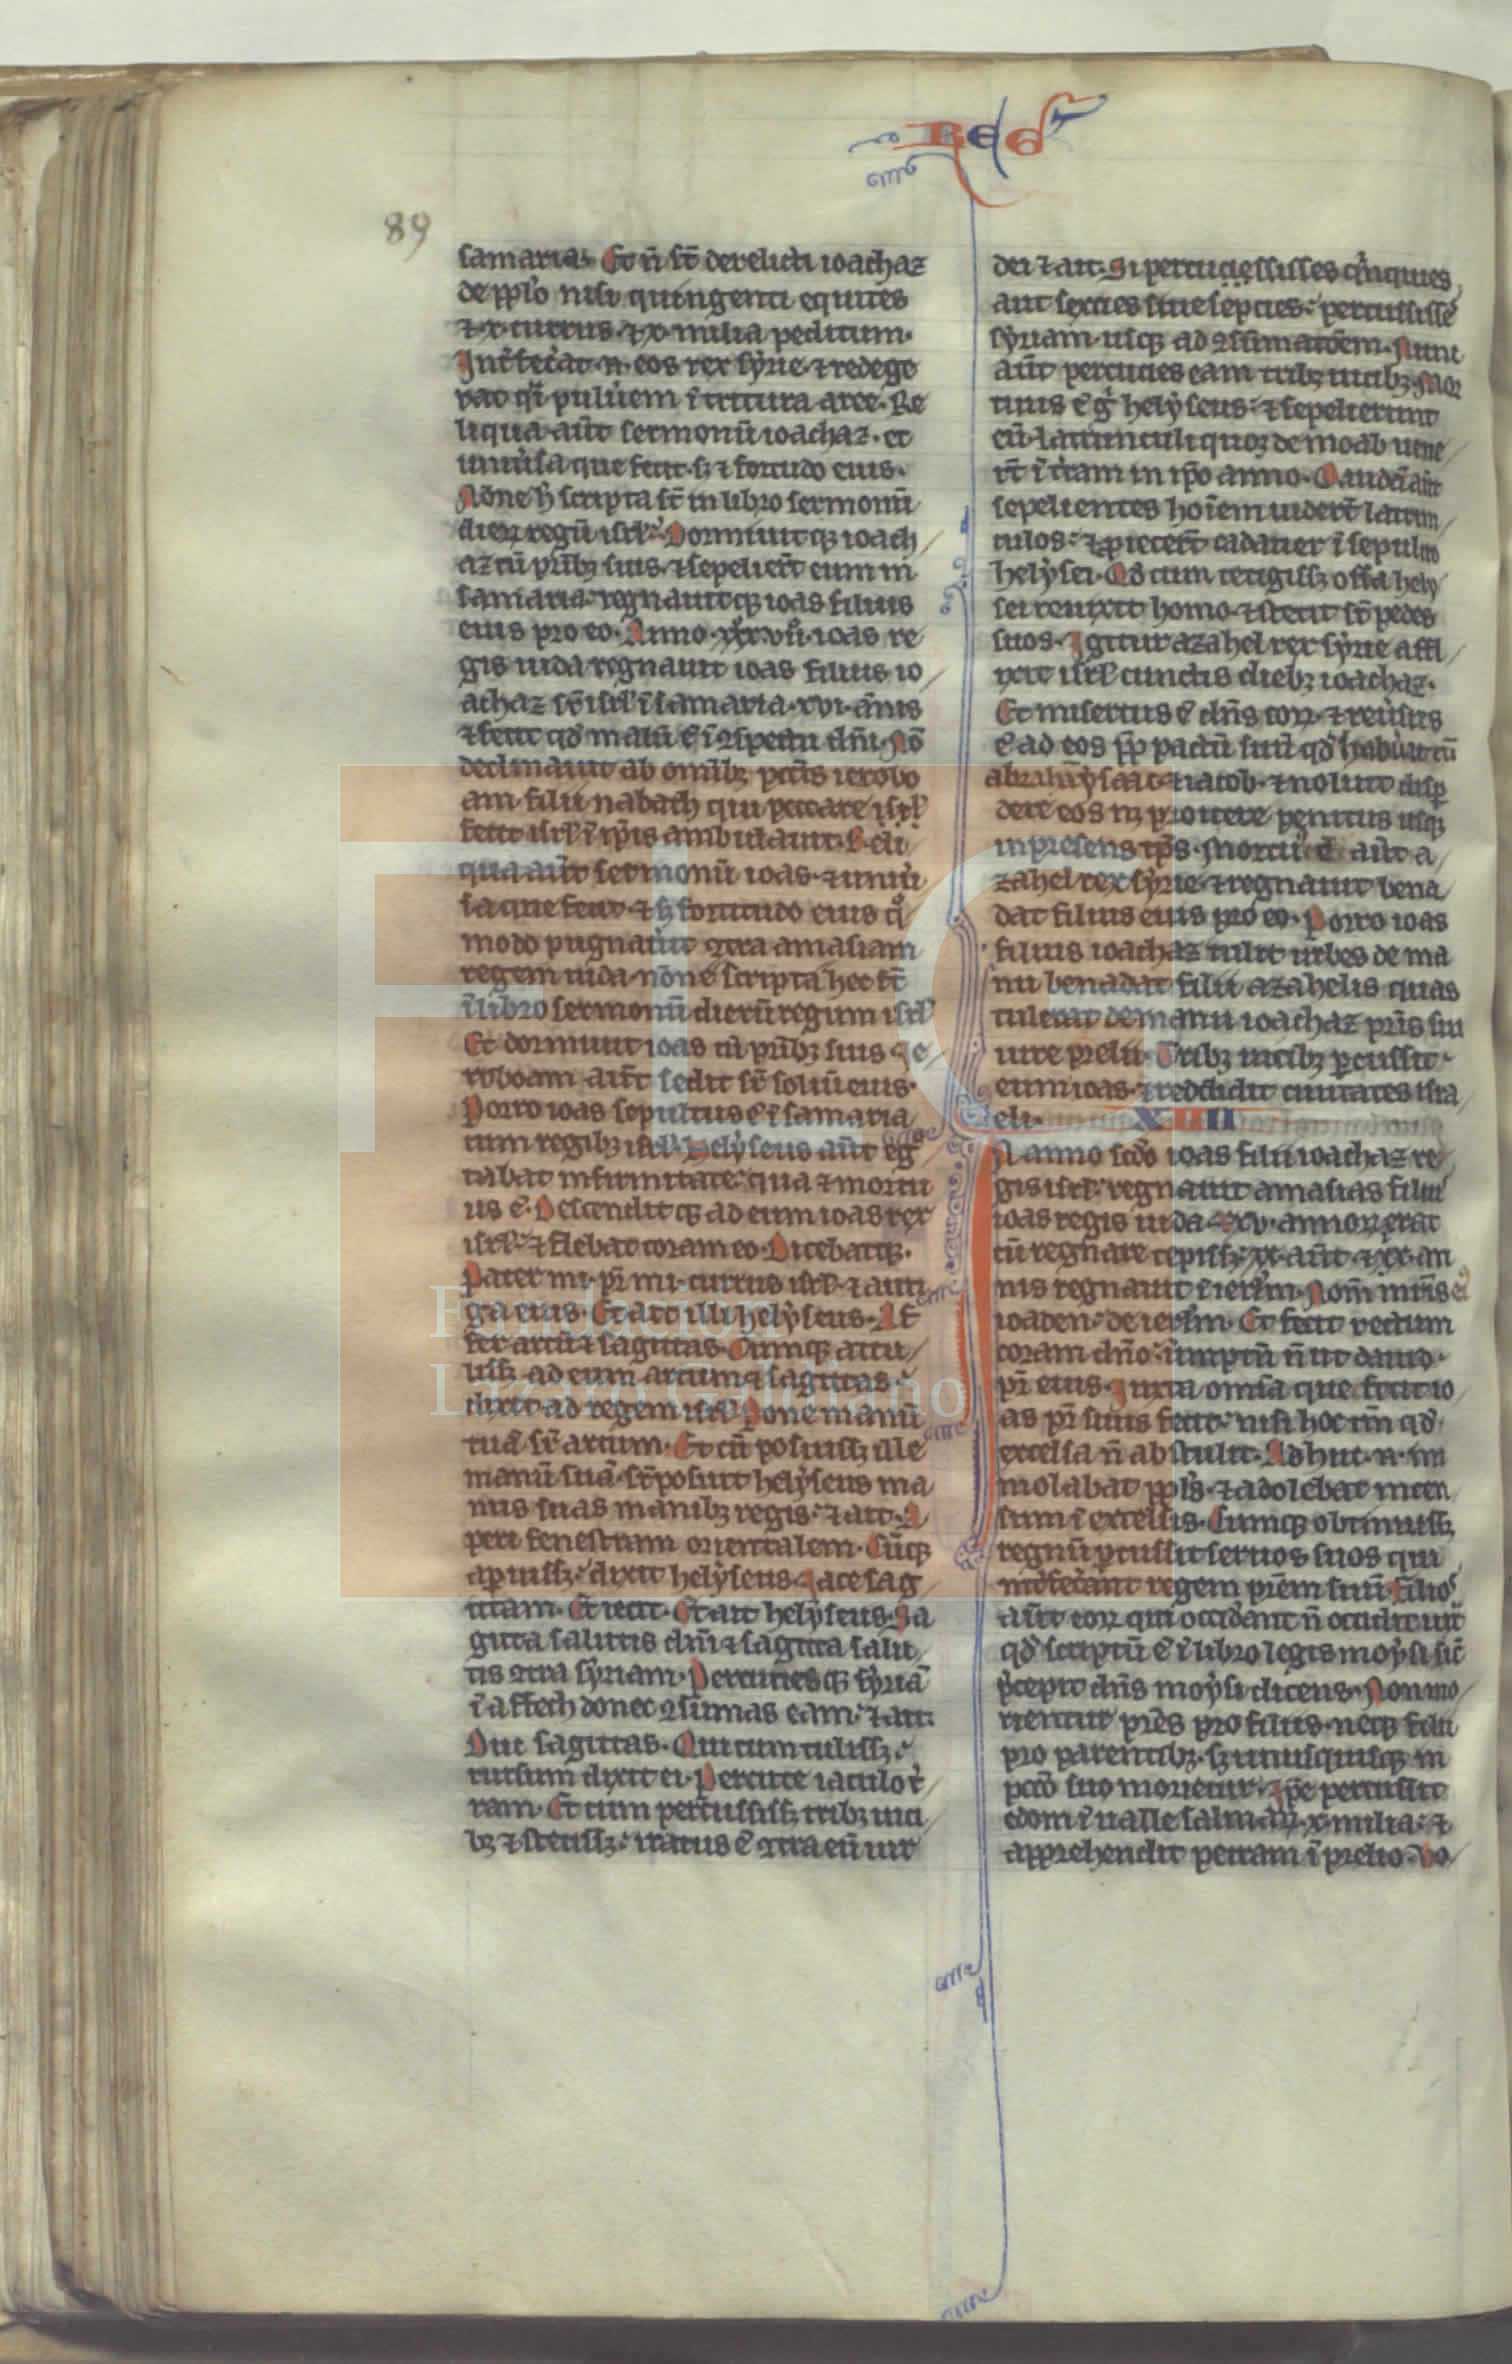 REG
89
samaria. Et ñ st̃ derelicti ioachaz
de pplo nisi quingenti equites
⁊ x. currus. ⁊ x. milia peditum.
Int̃fecat̾ .n. eos rex syrie. ⁊ redege
rat q̾i puluem ĩ tritura aree. Re
liqua aut̃ sermonũ ioachaz. et
uniũsa que fecit. sꝫ ⁊ fortitudo eius.
Nõne h̾ scripta st̃ in libro sermonũ
dieꝝ regũ isrl̾. Dormiuitqꝫ ioach
az cũ pr̃ibꝫ suis. ⁊ sepeliert̃ eum in
samaria. regnauitqꝫ ioas filius
eius pro eo. Anno .xxx.vii. ioas re
gis iuda regnauit ioas filius io
achaz sr̃ isrl̾ ĩ samaria .xvi. annis
⁊ fecit qd̾ malũ ẽ ĩ ꝯspectu dñi. Nõ
declinauit ab omĩbꝫ pccĩs ierobo
am filii nabath qui peccare isrl̾
fecit isrl̾ ĩ ip̃is ambulauit. Reli
qua aut̃ sermonũ ioas. ⁊ uniũ
sa que fecit. ⁊ h̾ fortitudo eius qͦ
modo pugnauit ꝯtra amasiam
regem iuda. nõne scripta hec st̃
ĩ libro sermonũ dierũ regum isrl̾
Et dormiuit ioas cũ pr̃ibꝫ suis Ie
roboam aut̃ sedit sr̃ soliũ eius.
Porro ioas sepultus ẽ ĩ samaria
cum regibꝫ isrl̾. Helyseus aut̃ eg̾
tabat infirmitate. qua ⁊ mortu
us ẽ. Descenditqꝫ ad eum ioas rex
isrl̾. ⁊ flebat coram eo. Dicebatqꝫ.
Pater mi. pr̃ mi. currus isrl̾. ⁊ auri
ga eius. Et ait illi helyseus. Af
fer arcũ ⁊ sagittas. Cumqꝫ attu
lissꝫ ad eum arcum ⁊ sagittas.
dixit ad regem isrl̾. Pone manũ
tuã sr̃ arcum. Et cũ posuissꝫ ille
manũ suã. sr̃posuit helyseus ma
nus suas manibꝫ regis. ⁊ ait. A
peri fenestram orientalem. Cũqꝫ
aꝑuissꝫ. dixit helyseus. Iace sag
ittam. Et iecit. Et ait helyseus. Sa
gitta salutis dñi ⁊ sagitta salu
tis ꝯtra syriam. Percuciesqꝫ syriã
ĩ affech donec ꝯsumas eam. ⁊ ait.
Due sagittas. Qui cum tulissꝫ.
rursum dixit ei. Percute iaculo t̾
ram. Et cum percussissꝫ tribꝫ uici
bꝫ ⁊ stetissꝫ. iratus ẽ ꝯtra eũ uir
dei ⁊ ait. Si percucięssisses q̾inquies
aut sexcies siue sepcies. percussisse
syriam usqꝫ ad ꝯsumatõem. Nunc
aut̃ percucies eam tribꝫ uicibꝫ. Mor
tuus ẽ g̾ helyseus. ⁊ sepelierunt
eũ. Latrunculi quoqꝫ de moab uene
rt̃ ĩ t̾ram in ip̃o anno. Quidã aut̃
sepelientes hoĩem uidert̃ latrun
culos. ⁊ proiecert̃ cadauer ĩ sepulcro
helysei. Qd̾ cum tetigissꝫ ossa hely
sei reuixit homo. ⁊ stetit sr̃ pedes
suos. Igitur azahel rex syrie affl
ixit isrl̾ cunctis diebꝫ ioachaz.
Et misertus ẽ dñs eoꝝ. ⁊ reũsus
ẽ ad eos ꝓpꝑ pactũ suũ qd̾ habuit cũ
abraham ysaac ⁊ iacob. ⁊ noluit disꝑ
dere eos nꝫ proicere penitus usqꝫ
in presens tp̃s. Mortuus ẽ aut̃ a
zahel rex syrie. ⁊ regnauit bena
dat filius eius pro eo. Porro ioas
filius ioachaz tulit urbes de ma
nu benadat filii azahelis quas
tulerat de manu ioachaz pr̃is sui
iure prelii. Tribꝫ uicibꝫ ꝑcussit
eum ioas. ⁊ reddidit ciuitates isra
eli. XIIII
IN anno scd̾o ioas filii ioachaz re
gis isrl̾. regnauit amasias filius
ioas regis iuda. xxv. annoꝝ erat
cũ regnare cepissꝫ. xx. aut̃ ⁊ ix. an
nis regnauit ĩ ierl̾m. Nom̃ mr̃is ei̾
ioaden. de ierl̾m. Et fecit rectum
coram dño. ũumptñ ñ ut dauid.
pr̃ eius. Iuxta omĩa que fecit io
as pr̃ suus fecit. nisi hoc tm̃ qd̾
excelsa ñ abstulit. Adhuc .n. im
molabat ppl̾s. ⁊ adolebat incen
sum ĩ excelsis. Cumqꝫ obtinuissꝫ
regnũ ꝑcussit seruos suos qui
int̃fecãnt regem pr̃em suũ Filios
aut̃ eoꝝ qui occiderant ñ occidit iux̃
qd̾ scriptũ ẽ ĩ libro legis moysi sic̃
p̾cepit dñs moysi dicens. Non mo
rientur pr̃es pro filiis. neqꝫ filii
pro parentibꝫ. sꝫ unusquisqꝫ in
pctõ suo morietur. Ip̃e percussit
edom ĩ ualle salinarꝝ. x. milia. ⁊
apprehendit petram ĩ prelio. Vo
FLG
Fundación
Lázaro Galdiano